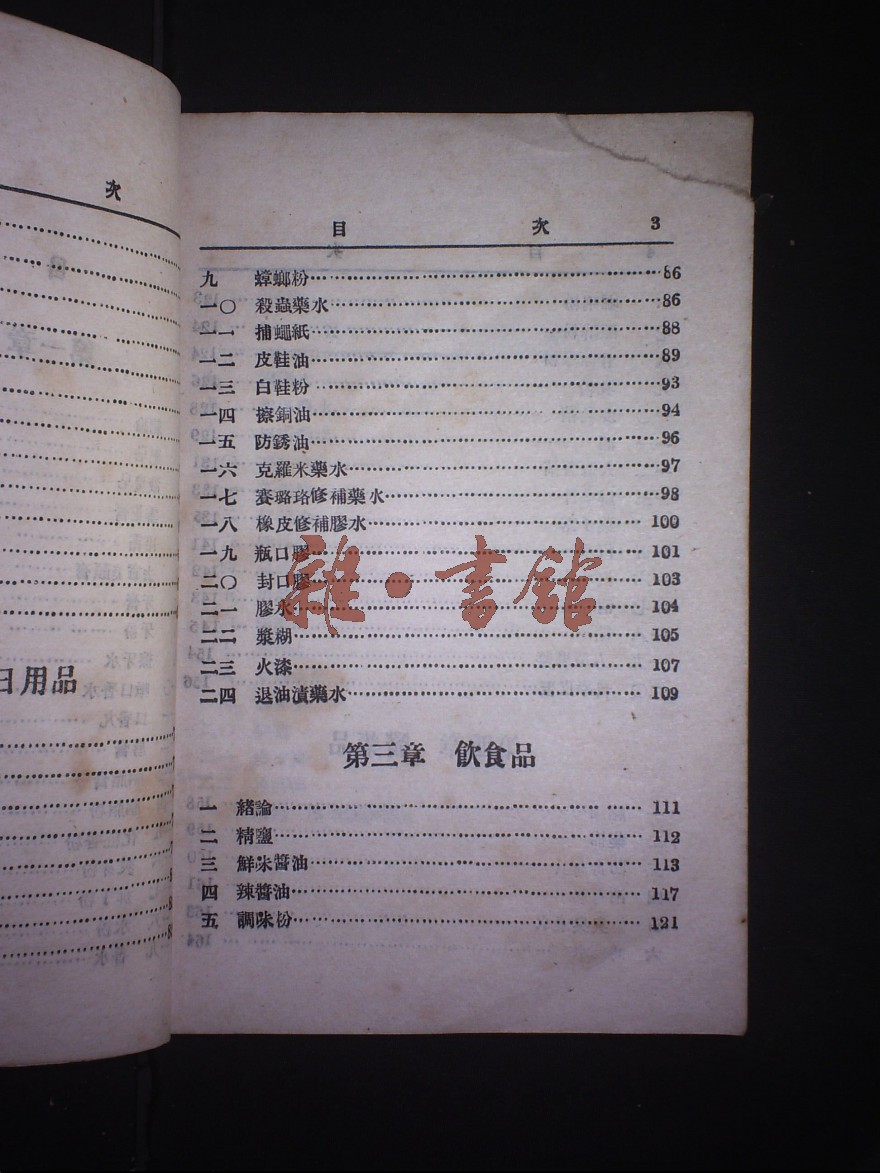 次
日用品
目 次 3
九 蟑螂粉 86
一〇 殺蟲藥水 86
一一 捕蠅紙 88
一二 皮鞋油 89
一三 白鞋粉 93
一四 擦銅油 94
一五 防銹油 96
一六 克羅米藥水 97
一七 賽璐珞修補藥水 98
一八 橡皮修補膠水 100
一九 瓶口膠 101
二〇 封口膠 103
二一 膠水 104
二二 漿糊 105
二三 火漆 107
二四 退油漬藥水 109
雜·書館
第三章 飲食品
一 緒論 111
二 精鹽 112
三 鮮味醬油 113
四 辣醬油 117
五 調味粉 121